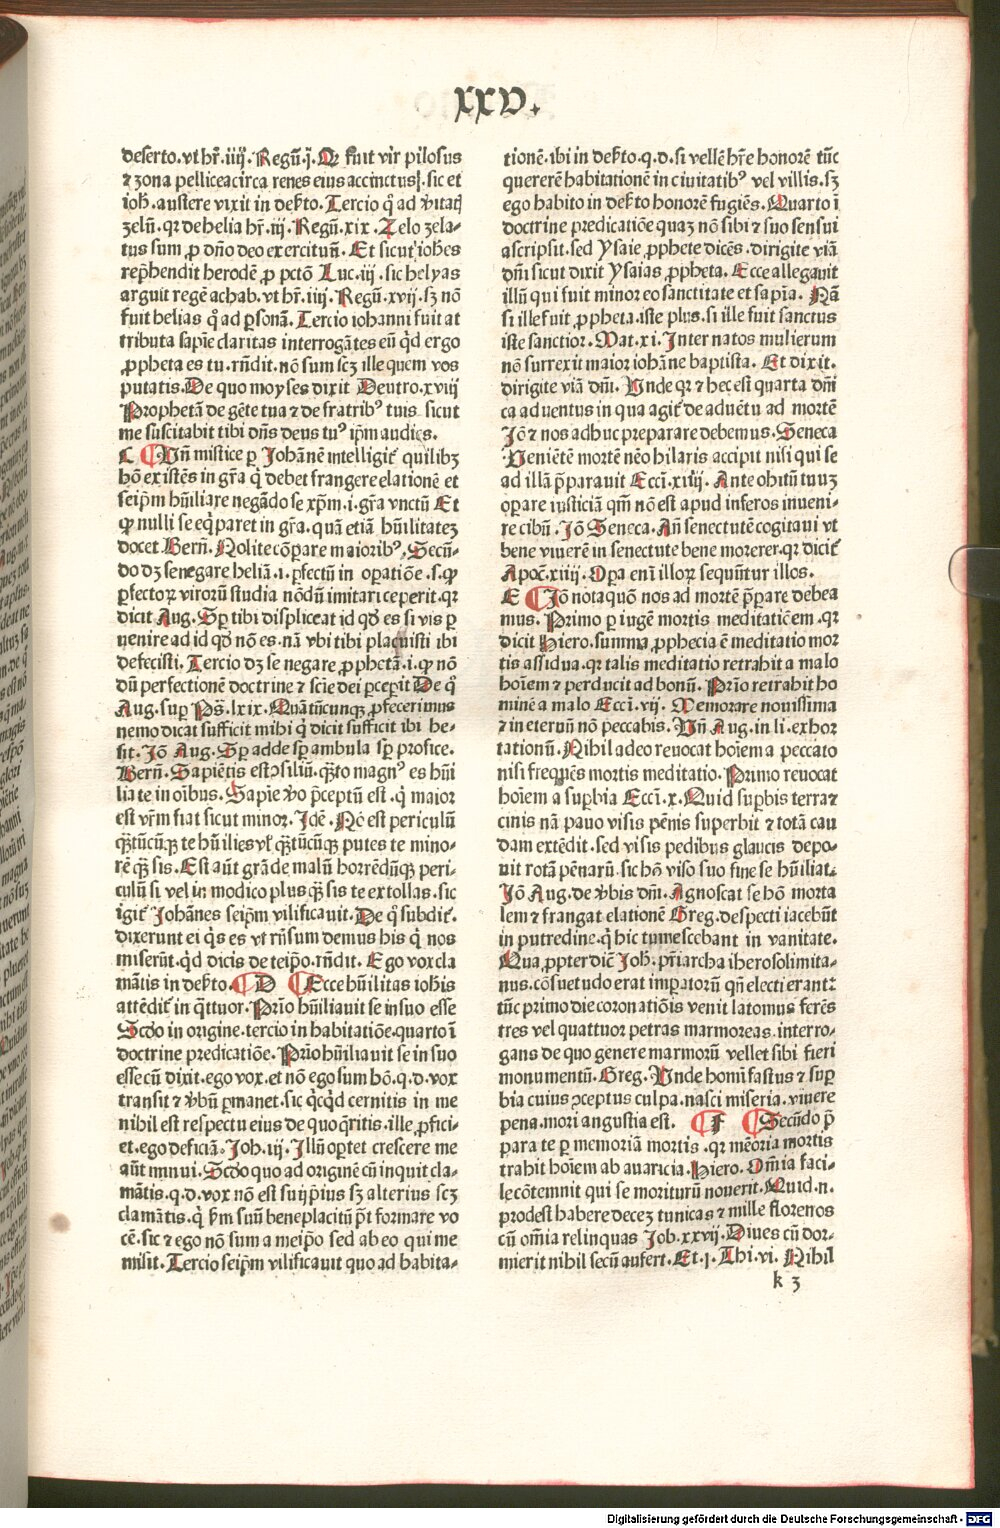 XXV.
deserto.vt hr̄.iiij.Regū.j.Q fuit vir pilosus
⁊ zona pelliceacirca renes eius accinctus.sic et
ioh̄.austere vixit in deẜto.Tercio q̄ ad vitatꝫ
zelū.qꝛ de helia hr̄.iij.Regū.xix.Zelo zela-
tus sum ꝓ dn̄o deo exercituū.Et sicut ioh̄es
rep̄hendit herodē ꝓ pctō Luc.iij.sic helyas
arguit regē achab.vt hr̄.iiij.Regū.xvij.sꝫ nō
fuit helias qͦ ad ꝑsonā.Tercio iohanni fuit at
tributa sapīe claritas interrogātes eū qͥd ergo
ꝓpheta es tu.rn̄dit.nō sum scꝫ ille quem vos
putatis.De quo moyses dixit Deutro.xviij
Prophetā de gēte tua ⁊ de fratribꝰ tuis sicut
me suscitabit tibi dn̄s deus tuꝰ ip̄m audies.
C Un̄ mistice ꝑ Johānē intelligit̄ quilibꝫ
hō existēs in gr̄a q̇ debet frangere elationē et
seip̄m hūiliare negādo se xp̄m.i.gr̄a vnctū Et
ꝙ nulli se eq̄paret in gr̄a.quā etiā hūilitateꝫ
docet Bern̄.Nolite cōpare maioribꝰ.Secū-
do dꝫ se negare heliā.i.ꝑfectū in opatiōe.s.ꝙ
ꝑfectoꝝ virorū studia nōdū imitari ceperit.qꝛ
dicit Aug.Sꝑ tibi displiceat id qd̄ es si vis ꝑ
uenire ad id qd̄ nō es.nā vbi tibi placuisti ibi
defecisti.Tercio dꝫ se negare ꝓphetā.i.ꝙ nō
dū perfectionē doctrine ⁊ scīe dei ꝑceperit De qͦ
Aug.suꝑ Ps̄.lxix.Quātūcunqꝫ ꝓfecerimus
nemo dicat sufficit mihi q̇ dicit sufficit ibi he-
sit.Jō Aug.Sꝑ adde sꝑ ambula sꝑ profice.
Bern̄.Sapiētis est ↄsiliū.qꝫto magnꝰ es hūi
lia te in oībus.Sapīe v̊o p̄ceptū est.q̇ maior
est vr̄m fiat sicut minor.Idē.Nō est periculū
qꝫtūcūqꝫ te hūilies vl̓ qꝫtūcūqꝫ putes te mino-
rē qꝫ sis.Est aūt grāde malū horrēdūqꝫ peri-
culū si vel in modico plus qꝫ sis te extollas.sic
igit̄ Johānes seip̄m vilificauit.De qͦ subdit̄.
dixerunt ei qͥs es vt rn̄sum demus his q̇ nos
miserūt.qͥd dicis de teip̄o.rn̄dit.Ego vox cla
mātis in deẜto. D Ecce hūilitas ioh̄is
attēdit̄ in qͣttuor.Prīo hūiliauit se in suo esse
Scd̄o in origine.tercio in habitatiōe.quarto ī
doctrine predicatiōe.Prīo hūiliauit se in suo
esse cū dixit.ego vox.et nō ego sum hō.q.d.vox
transit ⁊ v̊bū ꝑmanet.sic qͥcqͥd cernitis in me
nihil est respectu eius de quo q̄ritis.ille ꝓfici-
et.ego deficiā.Joh.iij.Illū oꝑtet crescere me
aūt minui.Scd̄o quo ad originē cū inquit cla-
mātis.q.d.vox nō est suijp̄ius sꝫ alterius scꝫ
clamātis.q̇ ẜm suū beneplacitū p̄t formare vo
cē.sic ⁊ ego nō sum a meip̄o sed ab eo qui me
misit.Tercio seip̄m vilificauit quo ad habita-
tionē.ibi in deẜto.q.d.si vellē hr̄e honorē tūc
quererē habitationē in ciuitatibꝰ vel villis.sꝫ
ego habito in deẜto honorē fugiēs.Quarto ī
doctrine predicatiōe quaꝫ nō sibi ⁊ suo sensui
ascripsit.sed Ysaie ꝓphete dicēs.dirigite viā
dn̄i sicut dixit Ysaias ꝓpheta.Ecce allegauit
illū qui fuit minor eo sanctitate et sapīa.Nā
si ille fuit ꝓpheta.iste plus.si ille fuit sanctus
iste sanctior.Mat.xi.Inter natos mulierum
nō surrexit maior iohāne baptista.Et dixit.
dirigite viā dn̄i.Unde qꝛ ⁊ hec est quarta dn̄i
ca aduentus in qua agit̄ de aduētu ad mortē
Jō ⁊ nos adhuc preparare debemus.Seneca
Ueniētē mortē nēo hilaris accipit nisi qui se
ad illā p̄parauit Ecci.xiiij.Ante obitū tuuꝫ
opare iusticiā qm̄ nō est apud inferos inueni-
re cibū.Jō Seneca.An̄ senectutē cogitaui vt
bene viuerē in senectute bene morerer.qꝛ dicit̄
Apoc̄.xiiij.Opa enī illoꝝ sequūtur illos.
E Jō nota quō nos ad mortē p̄pare debea
mus.Primo ꝑ iugē mortis meditatiōem.qꝛ
dicit Hiero.summa ꝓphecia ē meditatio mor
tis assidua.qꝛ talis meditatio retrahit a malo
hoīem ⁊ perducit ad bonū.Prīo retrahit ho
minē a malo Ecci.vij.Memorare nouissima
⁊ in eternū nō peccabis.Un̄ Aug.in li.exhor
tationū.Nihil adeo reuocat hoīem a peccato
nisi freq̄ns mortis meditatio.Primo reuocat
hoīem a suꝑbia Ecci.x.Quid suꝑbis terra ⁊
cinis nā pauo visis pēnis superbit ⁊ totā cau
dam extēdit.sed visis pedibus glaucis depo-
nit rotā pēnarū.sic hō viso suo fine se hūiliat.
Jō Aug.de v̊bis dn̄i.Agnoscat se hō morta
lem ⁊ frangat elationē Greg.despecti iacebūt
in putredine.q̇ hic tumescebant in vanitate.
Qua ꝓpter dīc Joh̄.pr̄iarcha iherosolimita-
nus.cōsuetudo erat impatorū qn̄ electi erant ⁊
tūc primo die coronatiōis venit latomus ferēs
tres vel quattuor petras marmoreas.interro-
gans de quo genere marmorū vellet sibi fieri
monumentū.Greg.Unde homī fastus ⁊ suꝑ
bia cuius ↄceptus culpa.nasci miseria.viuere
pena.mori angustia est. F Secūdo p̄
para te ꝑ memoriā mortis.qꝛ mēoria mortis
trahit hoīem ab auaricia.Hiero.Om̄ia faci-
le cōtemnit qui se moriturū nouerit.Quid.n.
prodest habere deceꝫ tunicas ⁊ mille florenos
cū om̄ia relinquas Job.xxvij.Diues cū dor-
mierit nihil secū aufert.Et.j.Thi.vi.Nihil
k 3
Digitalisierung gefördert durch die Deutsche Forschungsgemeinschaft - DFG